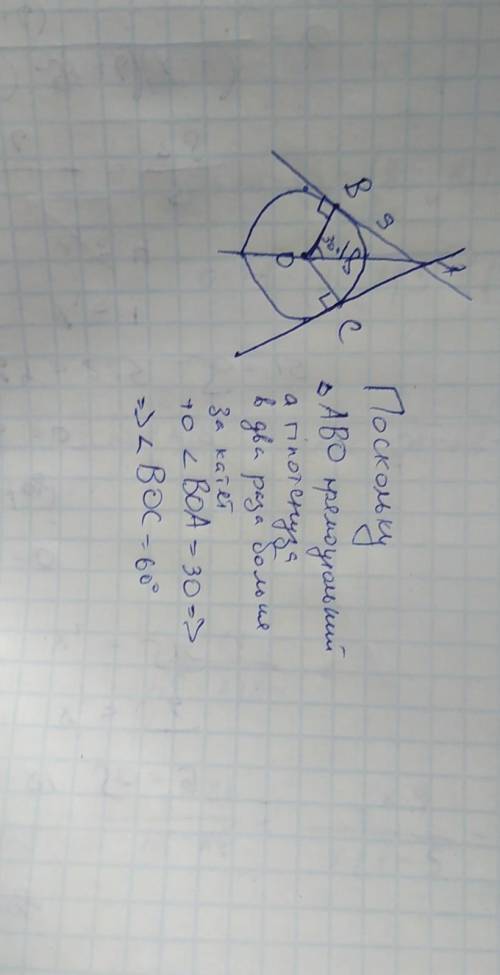 B
9
A
30°
18
O
C
Поскольку
▵ ABO прямоугольный
а гіпотенуза
в два раза больше
за катет
то ∠ BOA = 30 =>
=> ∠ BOC = 60°